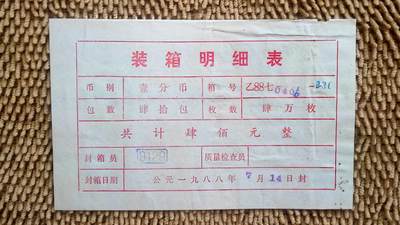 装箱明细表
币别 壹分币 箱号 乙88七
包数 肆拾包 枚数 肆万枚
共计肆佰元整
封箱员 质量检查员
封箱日期 公元一九八八年7月14日封